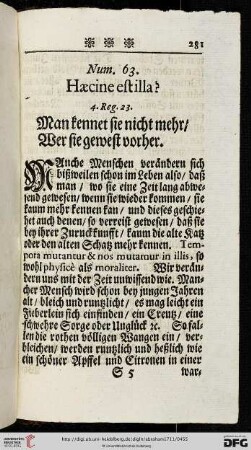 281
Num. 63.
Hæcine est illa?
4. Reg. 23.
Man kennet sie nicht mehr/
Wer sie gewest vorher.
MAnche Menschen verändern sich
bißweilen schon im Leben also/ daß
man/ wo sie eine Zeit lang abwe-
send gewesen/ wenn sie wieder kommen/ sie
kaum mehr kennen kan/ und dieses geschie-
het auch denen/ so verreist gewesen/ daß sie
bey ihrer Zuruckkunfft/ kaum die alte Katz
oder den alten Schatz mehr kennen. Tem-
pora mutantur & nos mutamur in illis, so
wohl physicè als moraliter. Wir verän-
dern uns mit der Zeit unwissend wie. Man-
cher Mensch wird schon bey jungen Jahren
alt/ bleich und runtzlicht/ es mag leicht ein
Fieberlein sich einfinden/ ein Creutz/ eine
schwehre Sorge oder Unglück &c. So fal-
len die rothen völligen Wangen ein/ ver-
bleichen/ werden runtzlich und heßlich wie
ein schöner Apffel und Citronen in einer
S 5
war-